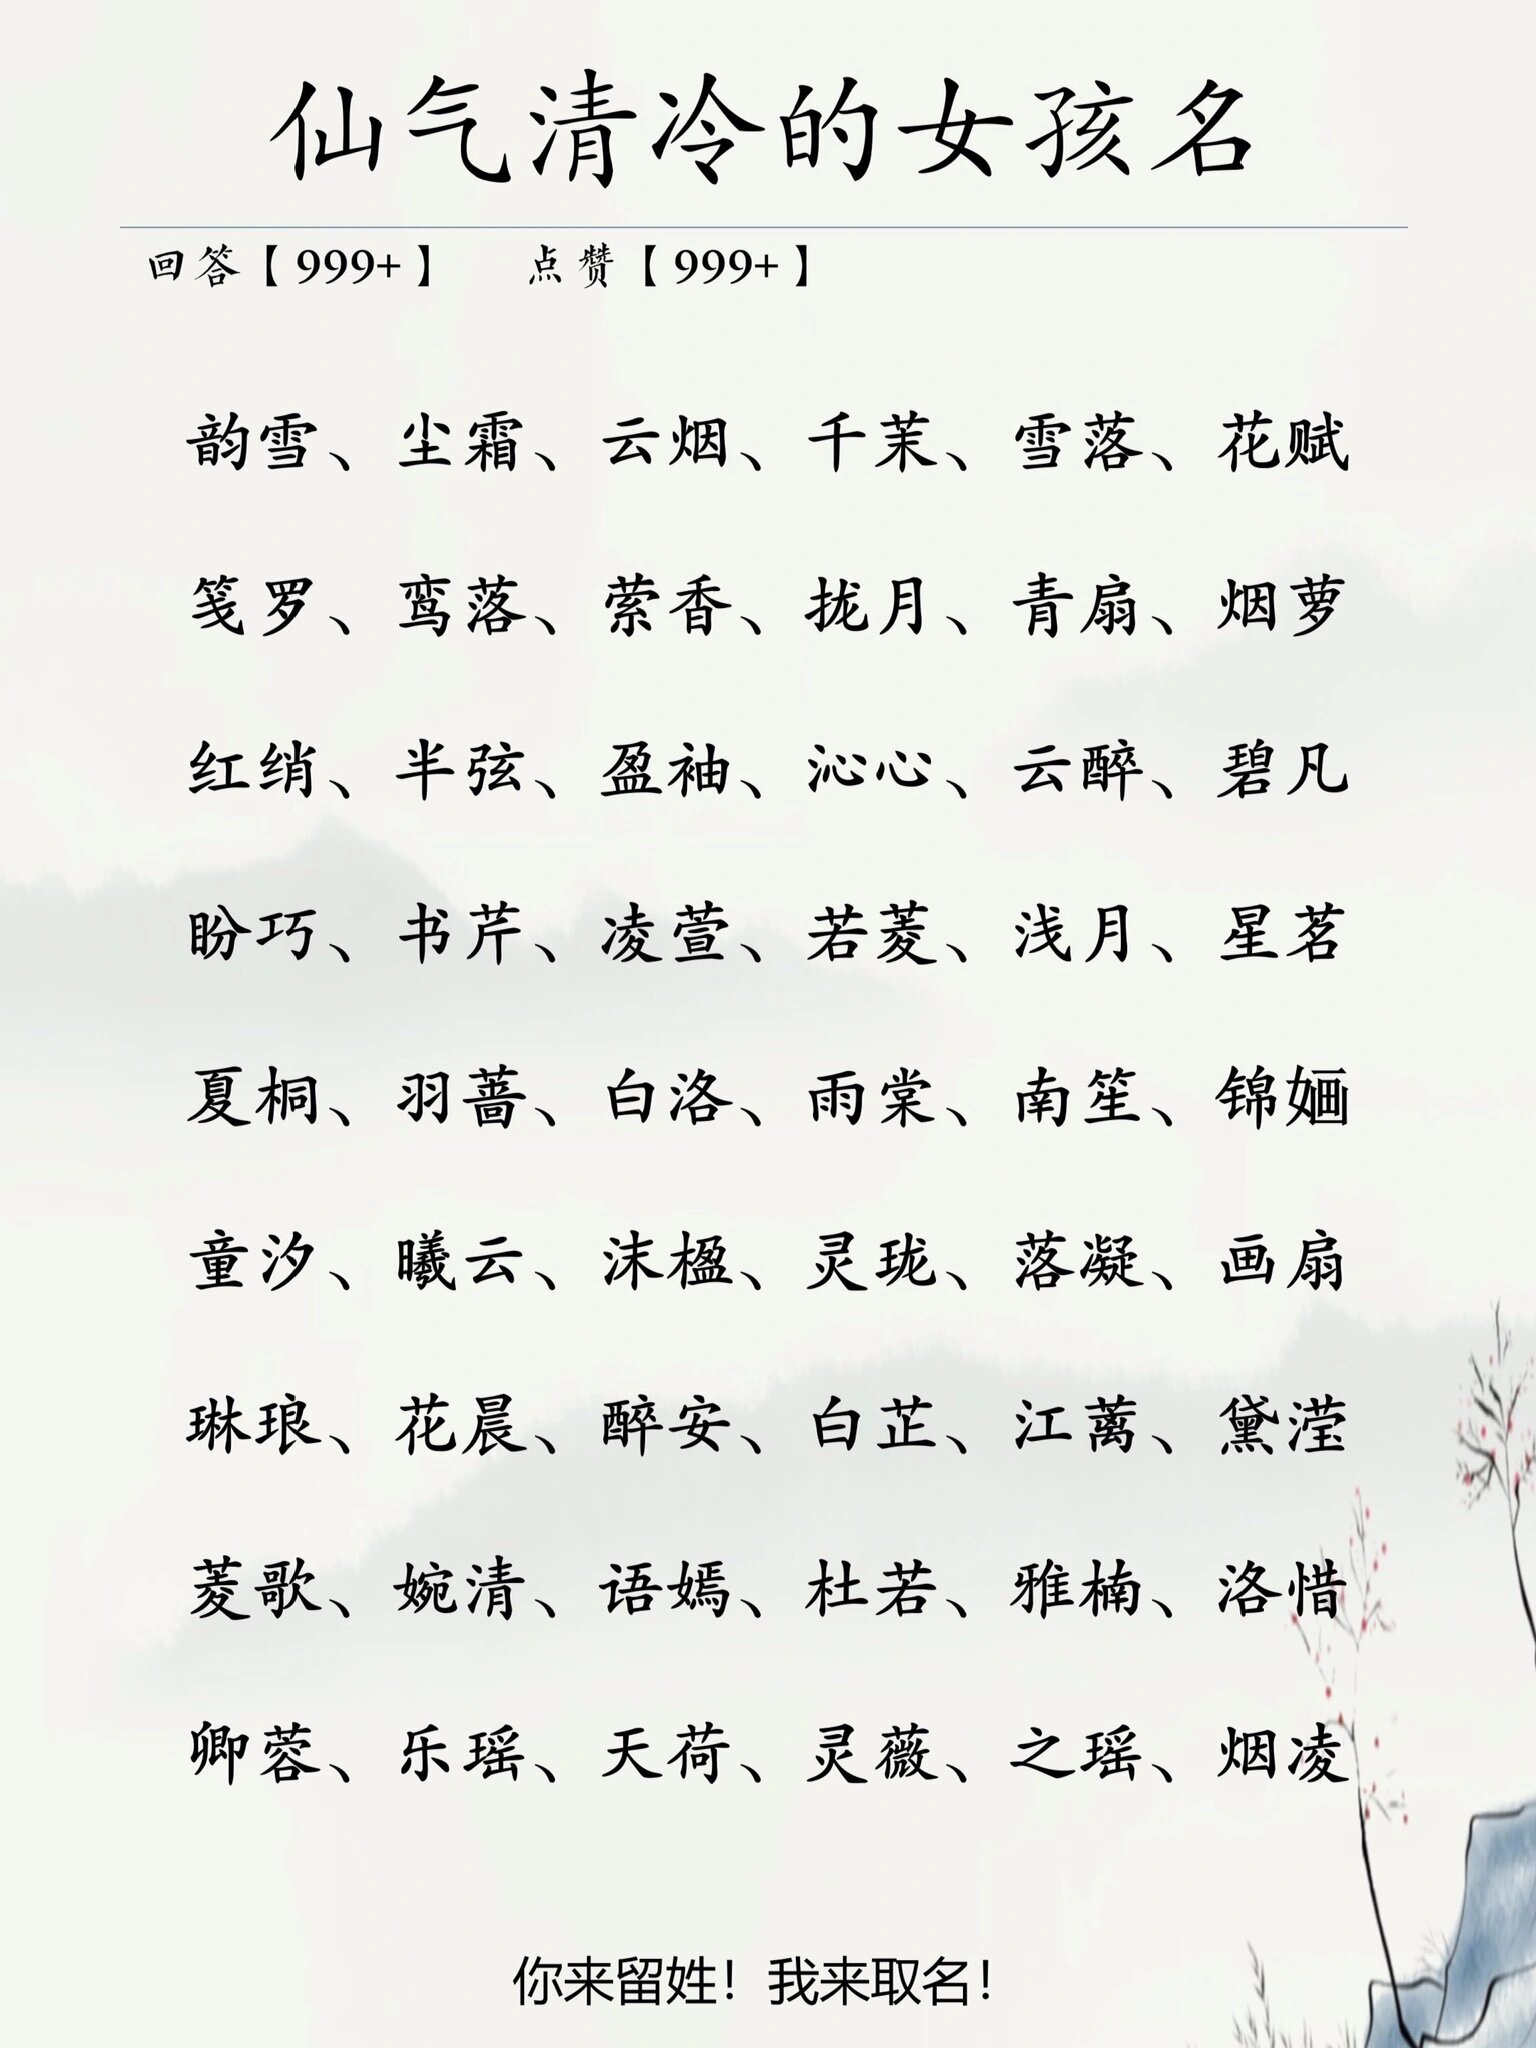 仙气清冷的女孩名
回答【999+】 点赞【999+】
韵雪、尘霜、云烟、千茉、雪落、花赋
笺罗、鸾落、萦香、拢月、青扇、烟萝
红绡、半弦、盈袖、沁心、云醉、碧凡
盼巧、书芹、凌萱、若菱、浅月、星茗
夏桐、羽蔷、白洛、雨棠、南笙、锦婳
童汐、曦云、沫楹、灵珑、落凝、画扇
琳琅、花晨、醉安、白芷、江蓠、黛滢
菱歌、婉清、语嫣、杜若、雅楠、洛惜
卿蓉、乐瑶、天荷、灵薇、之瑶、烟凌
你来留姓！我来取名！